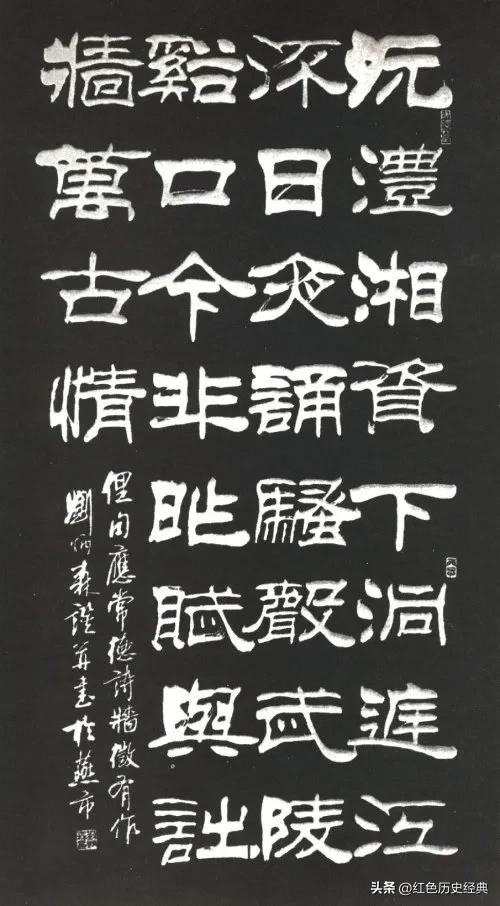 沅澧湘資下洞庭江
流日夜誦騷聲武陵
谿口今非昨賦與詩
牆萬古情
俚句應常德詩牆徵有作
劉炳森譔并書於燕市
头条 @红色历史经典